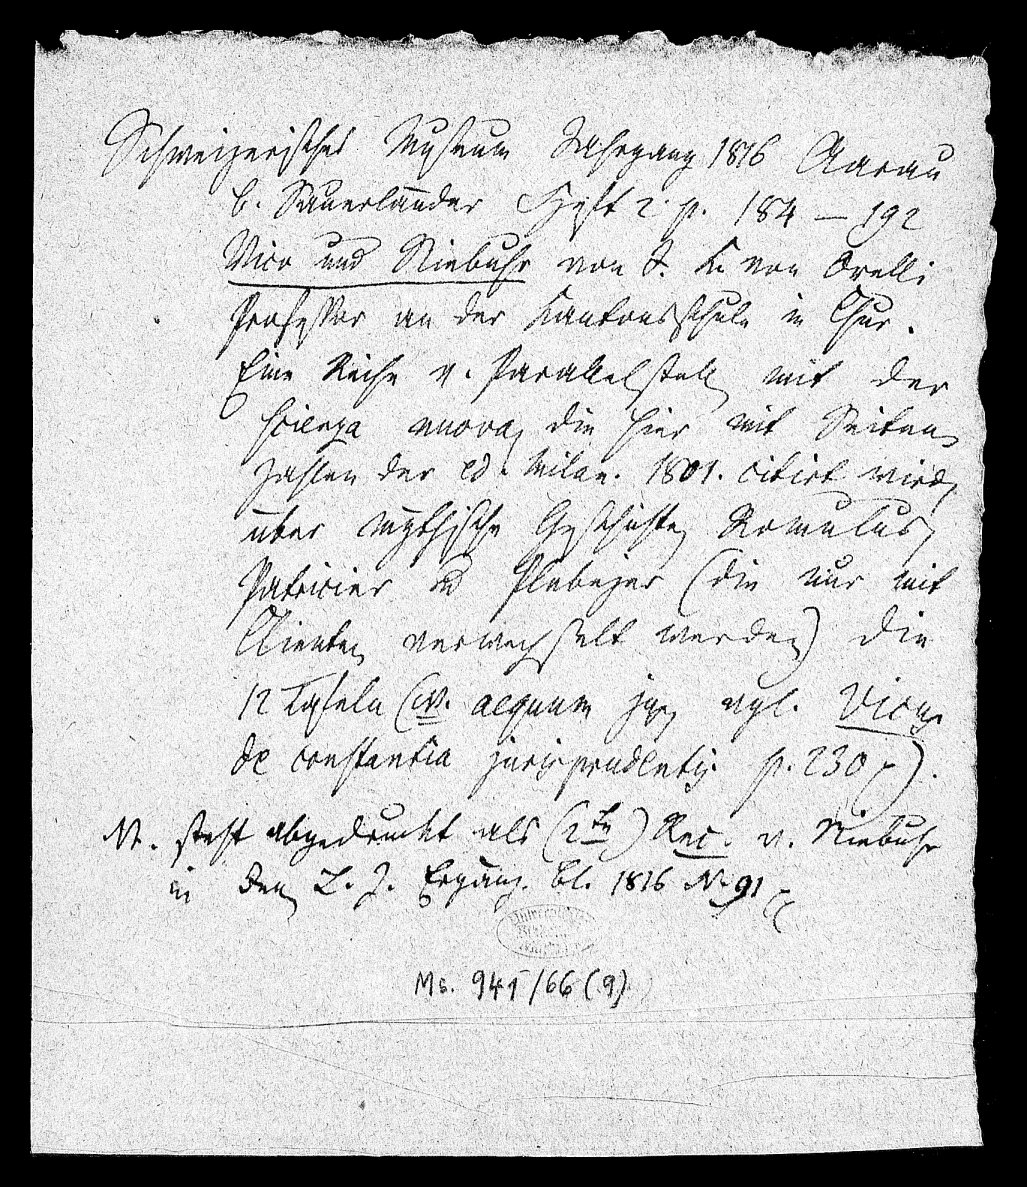 Schweizerisches Museum Jahrgang 1816 Aarau
b. Sauerländer Heft 2. p. 184 – 192
Vico und Niebuhr von J. K. von Orelli
Professor an der Kantonsschule in Chur.
Eine Reihe v. Parallelstellen mit der
scienza nuova, die hier mit Seiten
zahlen der ed. Milan. 1801. citirt wird,
über mythische Geschichte, Romulus,
Patricier und Plebejer (die nur mit
Clienten verwechselt werden) die
12 Tafeln (NB. aequum jus, vgl. Vicus
de constantia jurisprudentis p. 230).
NB. steht abgedruckt als (2te) Rec. v. Niebuhr
in den L. Z. Ergänz. bl. 1816 No 91
Ms. 941/66 (9)